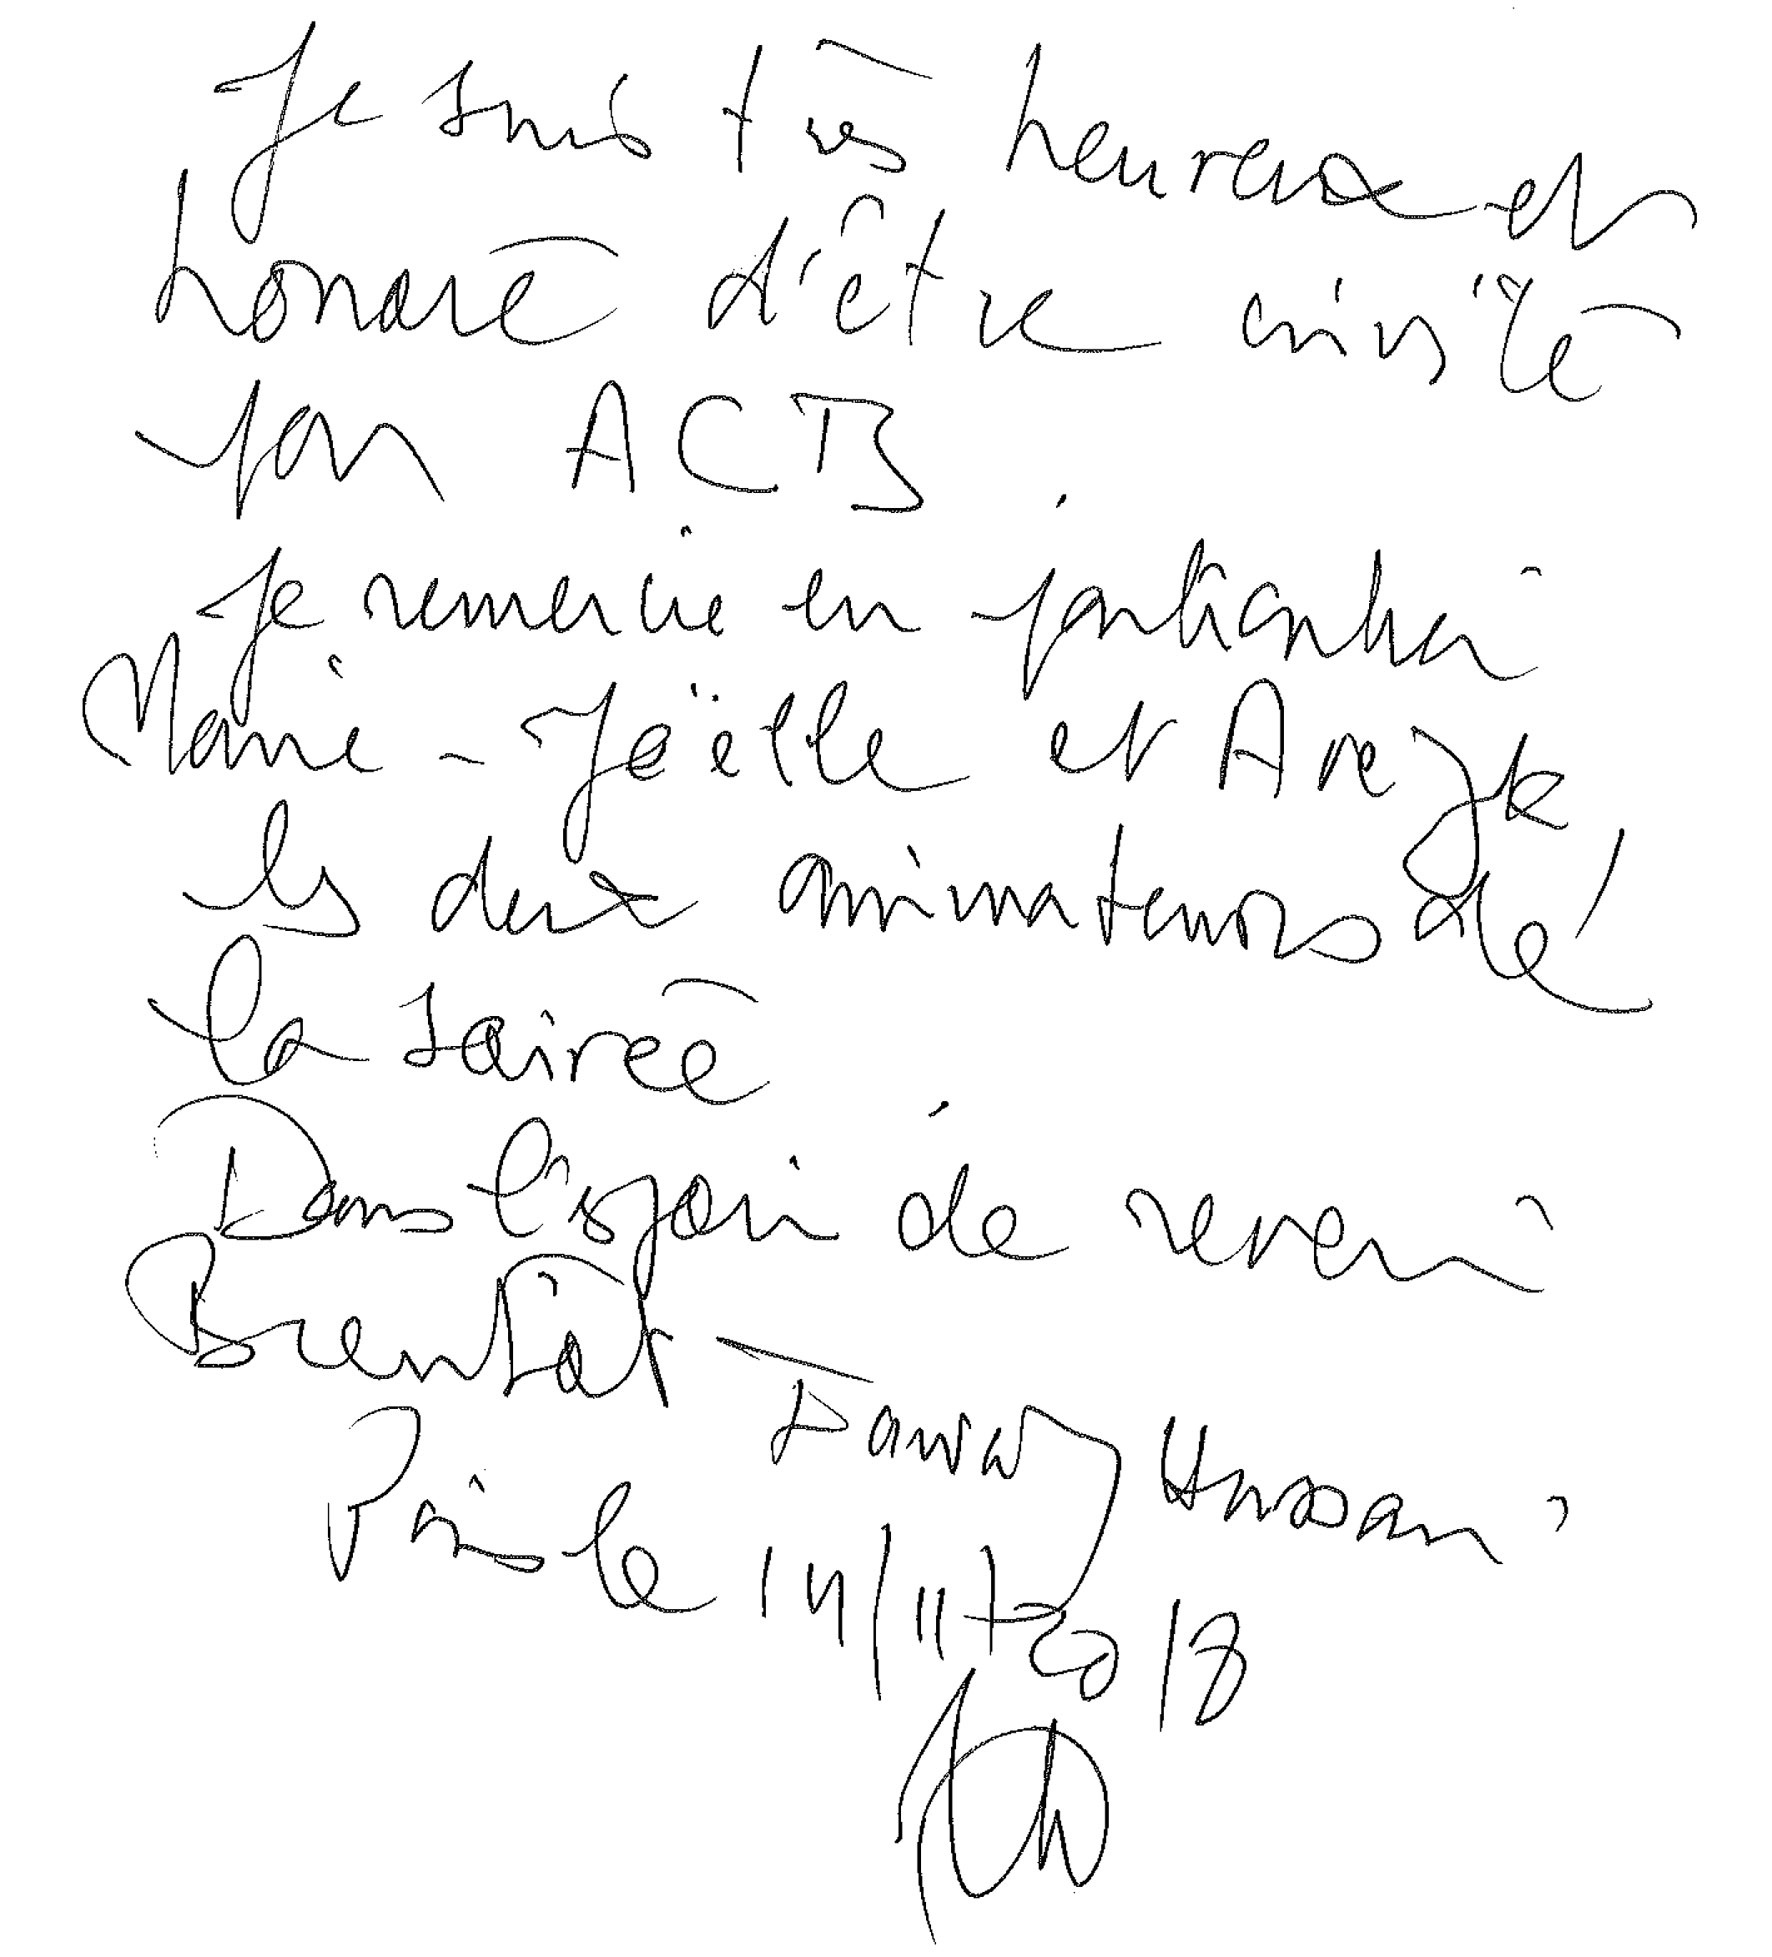 Je suis très heureux et
honoré d'être invité
par ACTB
Je remercie en particulier
Marie-Joëlle et Arezk
les deux animateurs de
la soirée
Dans l'espoir de revenir
Bientôt Fawaz Hussain
Paris le 14/11/2018